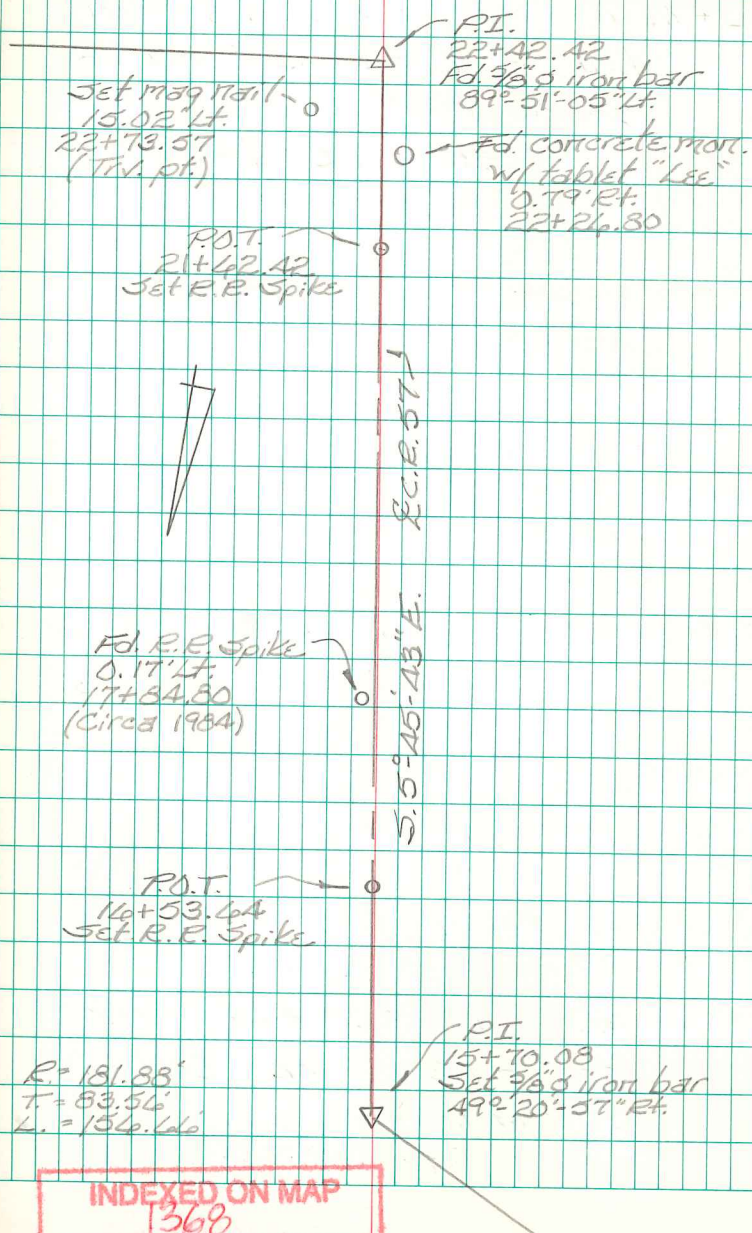 P.I.
22+42.42
Fd. 5/8"ø iron bar
89°-51'-05" Lt.
Set mag nail
15.02' Lt.
22+73.57
(Trv. pt.)
Fd. concrete mon.
w/ tablet "Lee"
0.79' Rt.
22+26.80
P.O.T.
21+62.42
Set R.R. Spike
℄ C.R. 57
S. 5°-45'-43" E.
Fd. R.R. Spike
0.17' Lt.
17+84.80
(Circa 1984)
P.O.T.
16+53.64
Set R.R. Spike
P.I.
15+70.08
Set 5/8"ø iron bar
49°-20'-57" Rt.
R. = 181.88'
T. = 83.56'
L. = 156.66'
INDEXED ON MAP
1368